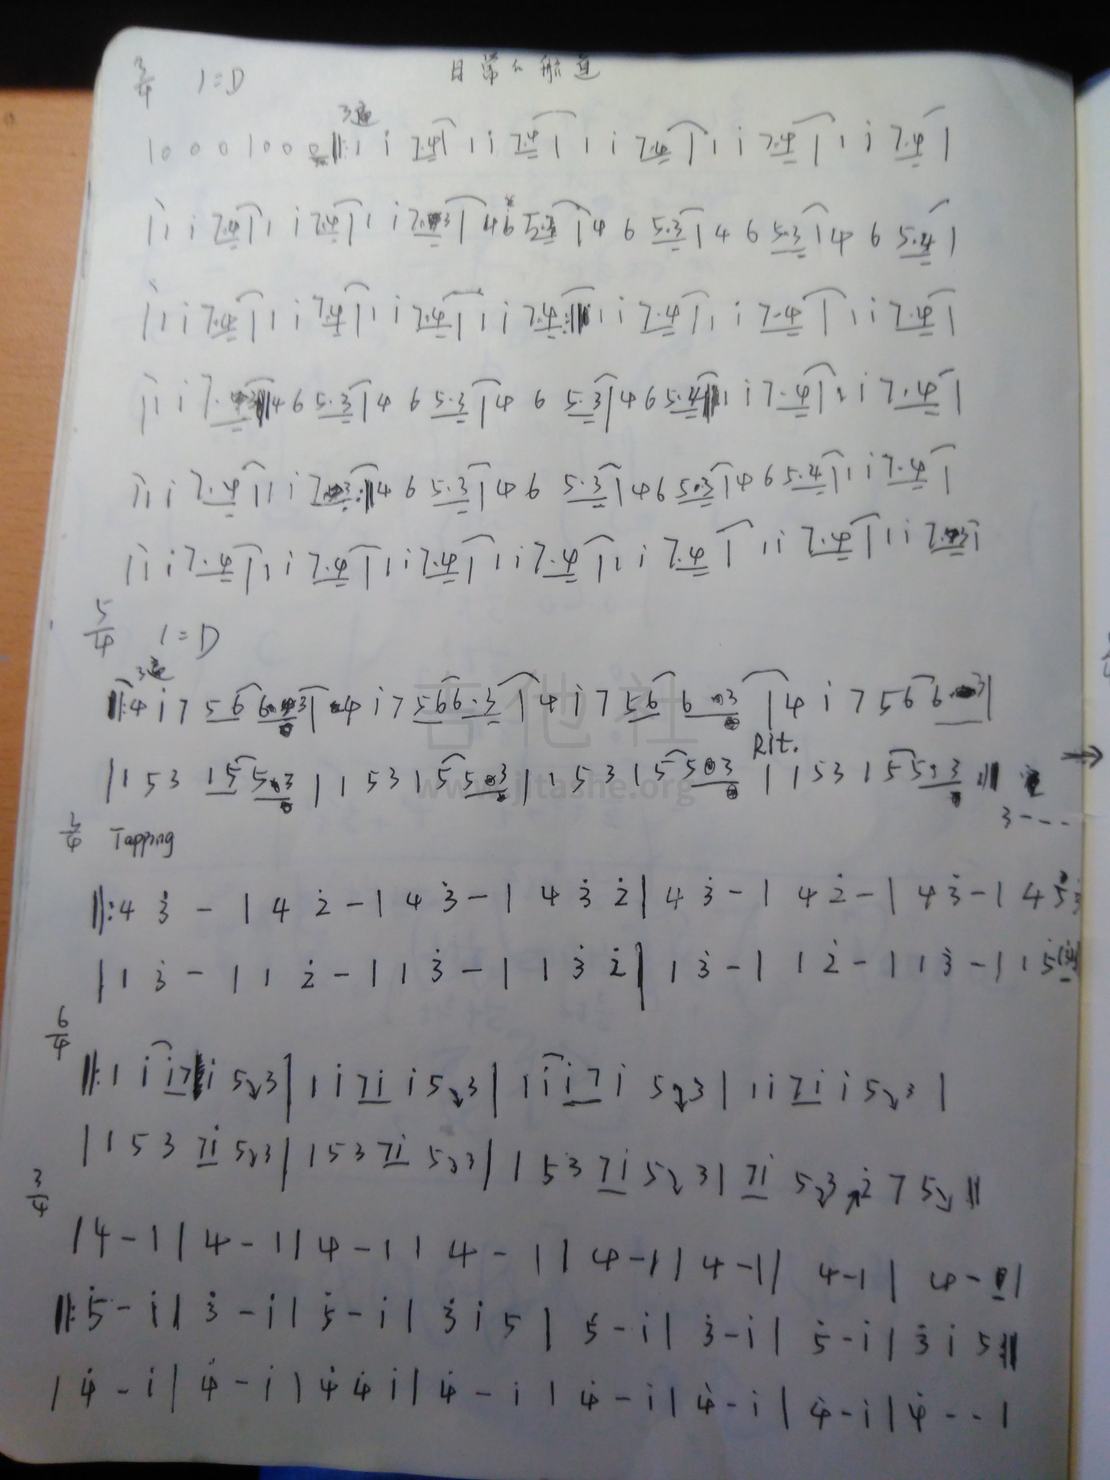 3/4 1=D 日常的航道
3遍
1 0 0 0 1 0 0 0 ‖: 1 i 7·4 | 1 i 7·4 | 1 i 7·4 | 1 i 7·4 | 1 i 7·4 |
1 i 7·4 | 1 i 7·4 | 1 i 7·3 | 4 6 5·3 | 4 6 5·3 | 4 6 5·3 | 4 6 5·4 |
1 i 7·4 | 1 i 7·4 | 1 i 7·4 | 1 i 7·4 :‖ 1 i 7·4 | 1 i 7·4 | 1 i 7·4 |
1 i 7·3 | 4 6 5·3 | 4 6 5·3 | 4 6 5·3 | 4 6 5·4 | 1 i 7·4 | 1 i 7·4 |
1 i 7·4 | 1 i 7·3 :‖ 4 6 5·3 | 4 6 5·3 | 4 6 5·3 | 4 6 5·4 | 1 i 7·4 |
1 i 7·4 | 1 i 7·4 | 1 i 7·4 | 1 i 7·4 | 1 i 7·4 | 1 i 7·4 | 1 i 7·3
5/4 1=D
3遍
‖: 4 i 7 5 6 6·3 | 4 i 7 5 6 6·3 | 4 i 7 5 6 6·3 | 4 i 7 5 6 6·3 |
Rit.
| 1 5 3 1 5 5·3 | 1 5 3 1 5 5·3 | 1 5 3 1 5 5·3 | 1 5 3 1 5 5·3 :‖ →
3 - - -
3/4 Tapping
‖: 4 3̇ - | 4 2̇ - | 4 3̇ - | 4 3̇ 2̇ | 4 3̇ - | 4 2̇ - | 4 3̇ - | 4 5̇ 3̇
| 1 3̇ - | 1 2̇ - | 1 3̇ - | 1 3̇ 2̇ | 1 3̇ - | 1 2̇ - | 1 3̇ - | 1 5̇
6/4
‖: 1 i i7 i 5↘3 | 1 i 7i i 5↘3 | 1 i i7 i 5↘3 | 1 i 7i i 5↘3 |
| 1 5 3 7i 5↘3 | 1 5 3 7i 5↘3 | 1 5 3 7i 5↘3 | 7i 5↘3↗2̇ 7 5↘ ‖
3/4
| 4 - 1 | 4 - 1 | 4 - 1 | 4 - 1 | 4 - 1 | 4 - 1 | 4 - 1 | 4 - |
‖: 5̇ - i | 3̇ - i | 5̇ - i | 3̇ i 5 | 5̇ - i | 3̇ - i | 5̇ - i | 3̇ i 5 :‖
| 4̇ - i | 4̇ - i | 4̇ 4̇ i | 4̇ - i | 4̇ - i | 4̇ - i | 4̇ - i | 4̇ - - |
吉他社
www.jitashe.org